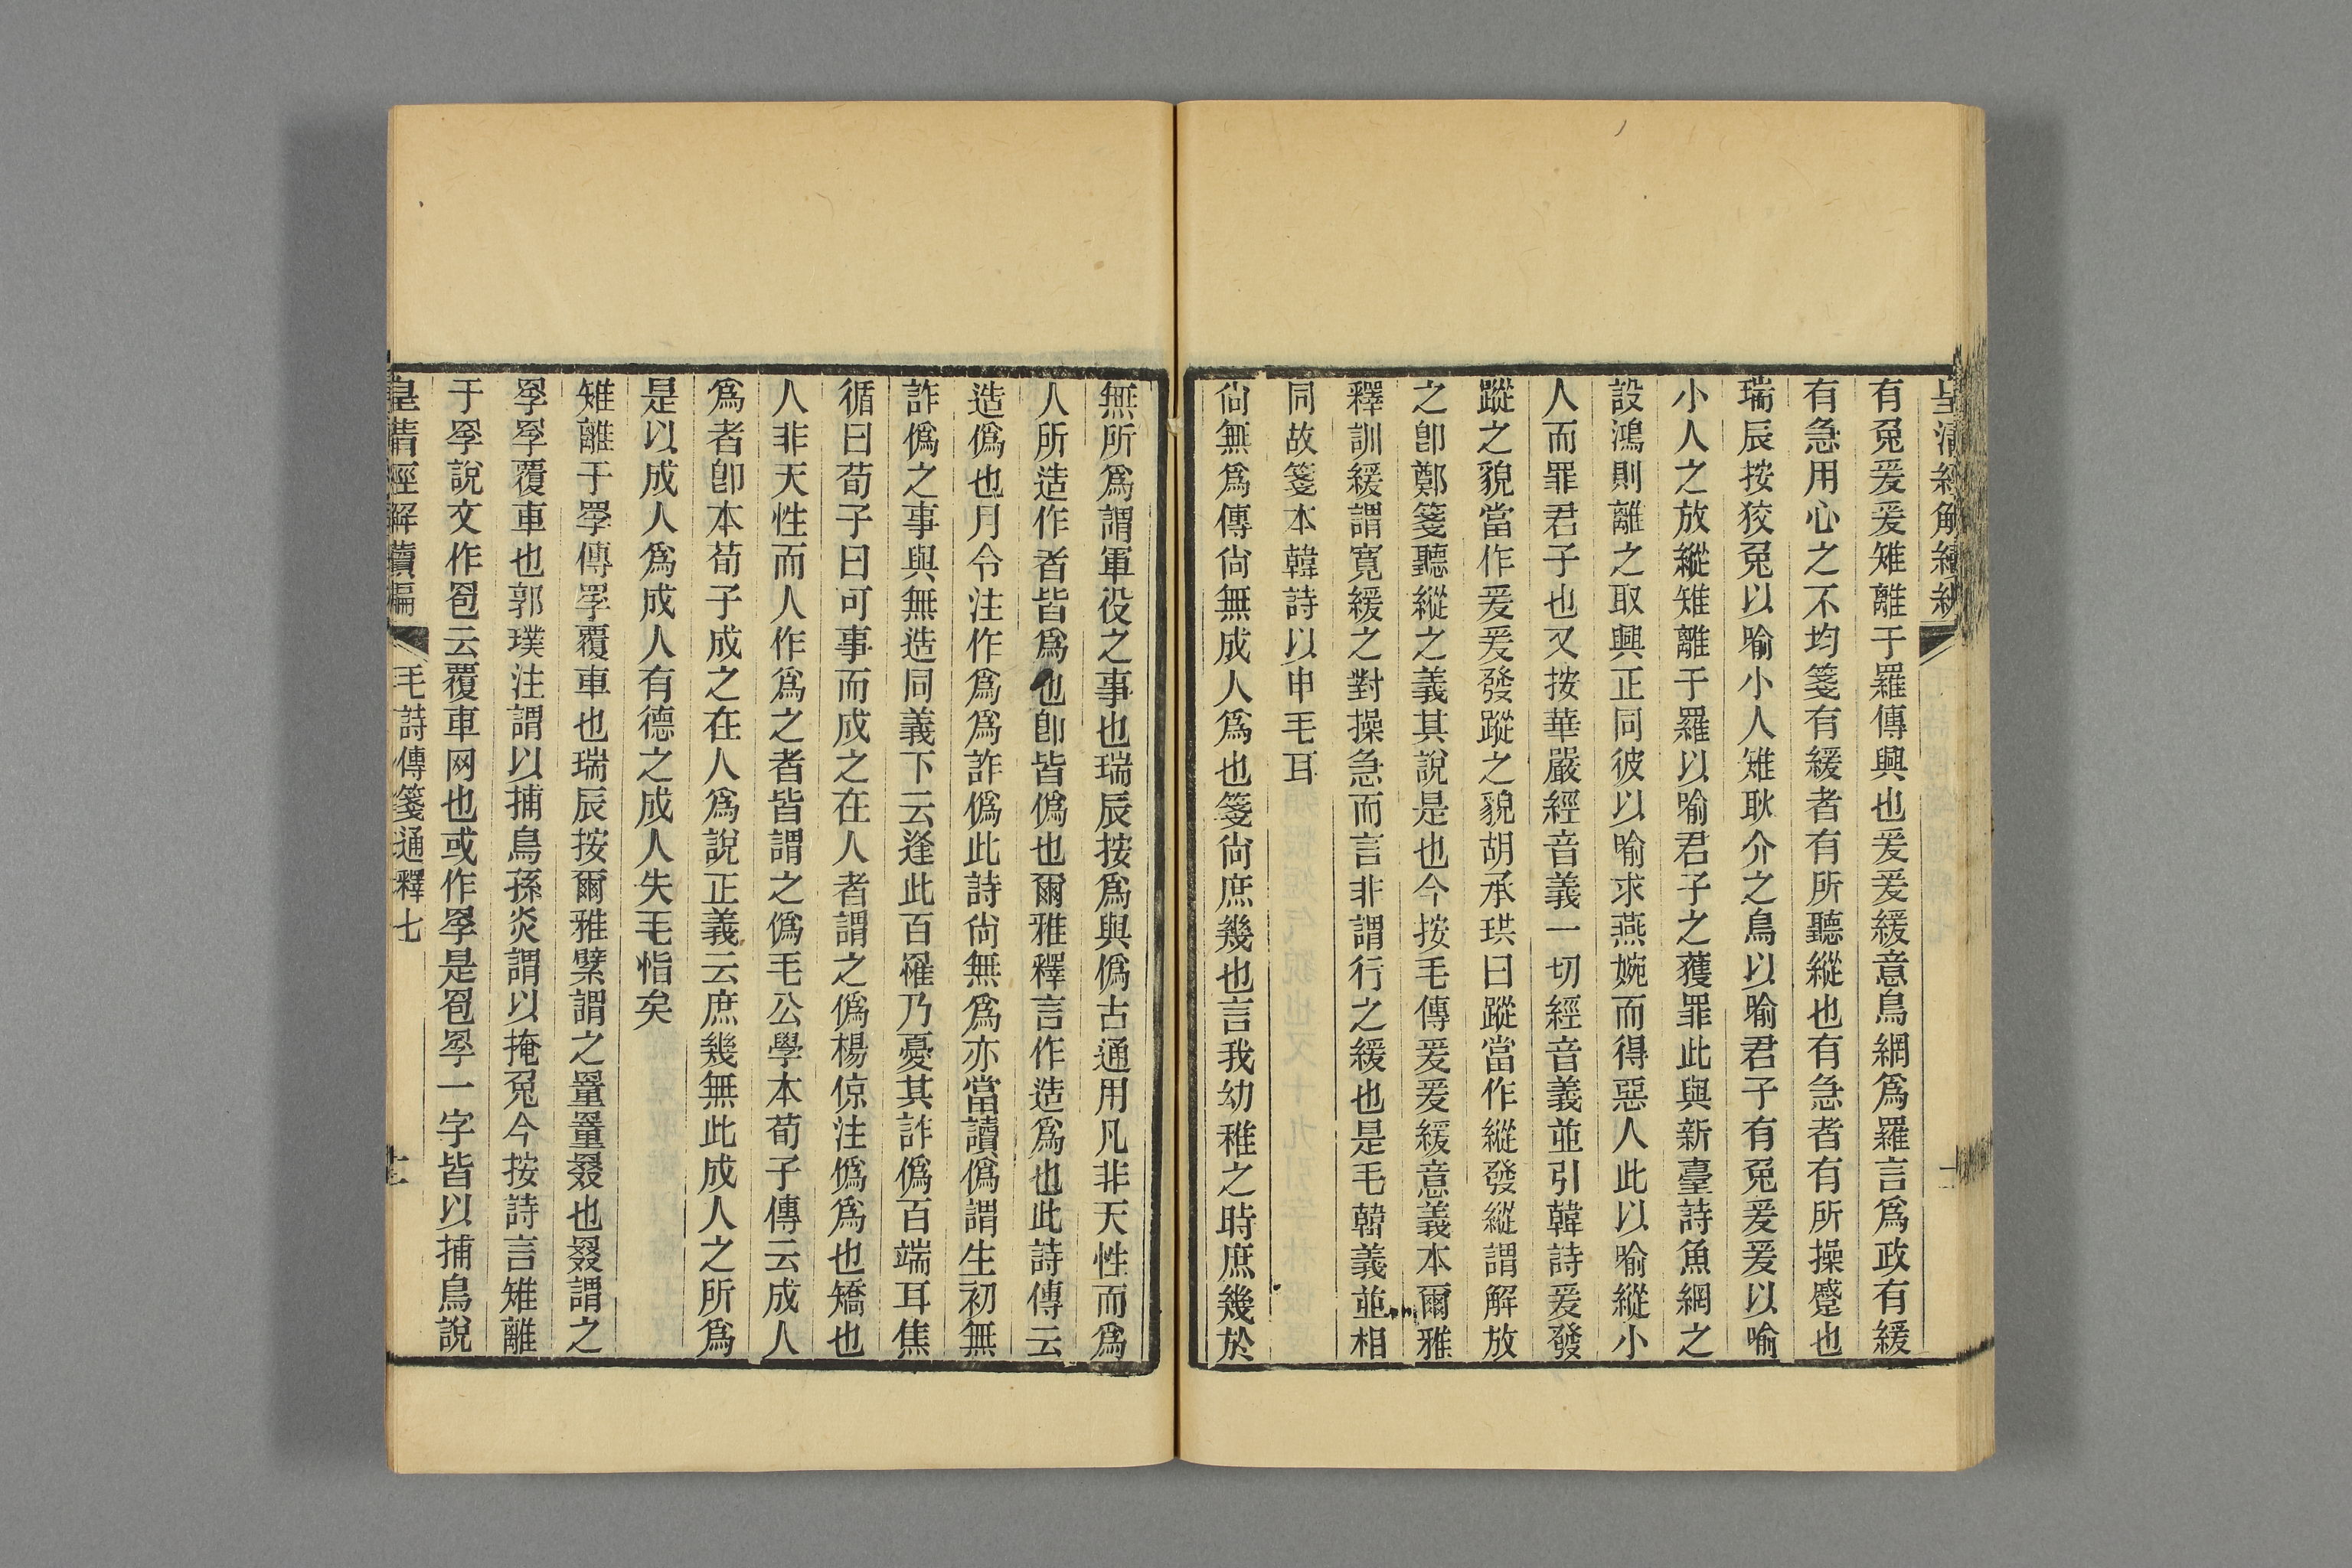 有兔爰爰雉離于羅傳興也爰爰緩意鳥網爲羅言爲政有緩
有急用心之不均箋有緩者有所聽縱也有急者有所操蹙也
瑞辰按狡兔以喻小人雉耿介之鳥以喻君子有兔爰爰以喻
小人之放縱雉離于羅以喻君子之獲罪此與新臺詩魚網之
設鴻則離之取興正同彼以喻求燕婉而得惡人此以喻縱小
人而罪君子也又按華嚴經音義一切經音義並引韓詩爰發
蹤之貌當作爰爰發蹤之貌胡承珙曰蹤當作縱發縱謂解放
之卽鄭箋聽縱之義其說是也今按毛傳爰爰緩意義本爾雅
釋訓緩謂寬緩之對操急而言非謂行之緩也是毛韓義並相
同故箋本韓詩以申毛耳
尙無爲傳尙無成人爲也箋尙庶幾也言我幼稚之時庶幾於
無所爲謂軍役之事也瑞辰按爲與僞古通用凡非天性而爲
人所造作者皆爲也卽皆僞也爾雅釋言作造爲也此詩傳云
造僞也月令注作爲爲詐僞此詩尙無爲亦當讀僞謂生初無
詐僞之事與無造同義下云逢此百罹乃憂其詐僞百端耳焦
循曰荀子曰可事而成之在人者謂之僞楊倞注僞爲也矯也
人非天性而人作爲之者皆謂之僞毛公學本荀子傳云成人
爲者卽本荀子成之在人爲說正義云庶幾無此成人之所爲
是以成人爲成人有德之成人失毛恉矣
雉離于罦傳罦覆車也瑞辰按爾雅繴謂之罿罿罬也罬謂之
罦罦覆車也郭璞注謂以捕鳥孫炎謂以掩兔今按詩言雉離
于罦說文作䍖云覆車网也或作罦是䍖罦一字皆以捕鳥說
皇清經解續編
毛詩傳箋通釋七